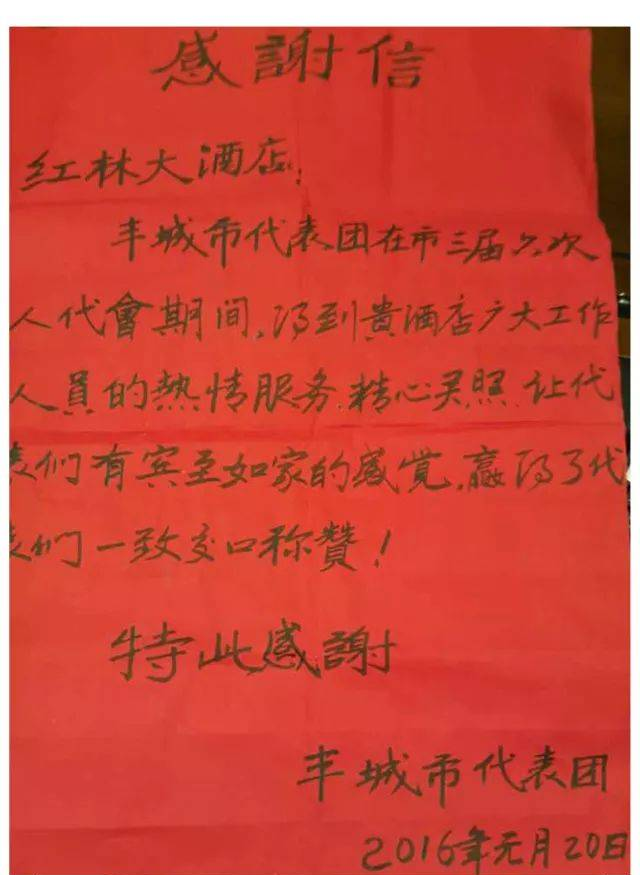 感謝信
红林大酒店:
丰城市代表团在市三届六次
人代會期间,得到貴酒店广大工作
人員的熱情服务.精心关照.让代
表们有宾至如家的感觉,赢得了代
表们一致交口称贊!
特此感謝
丰城市代表团
2016年元月20日